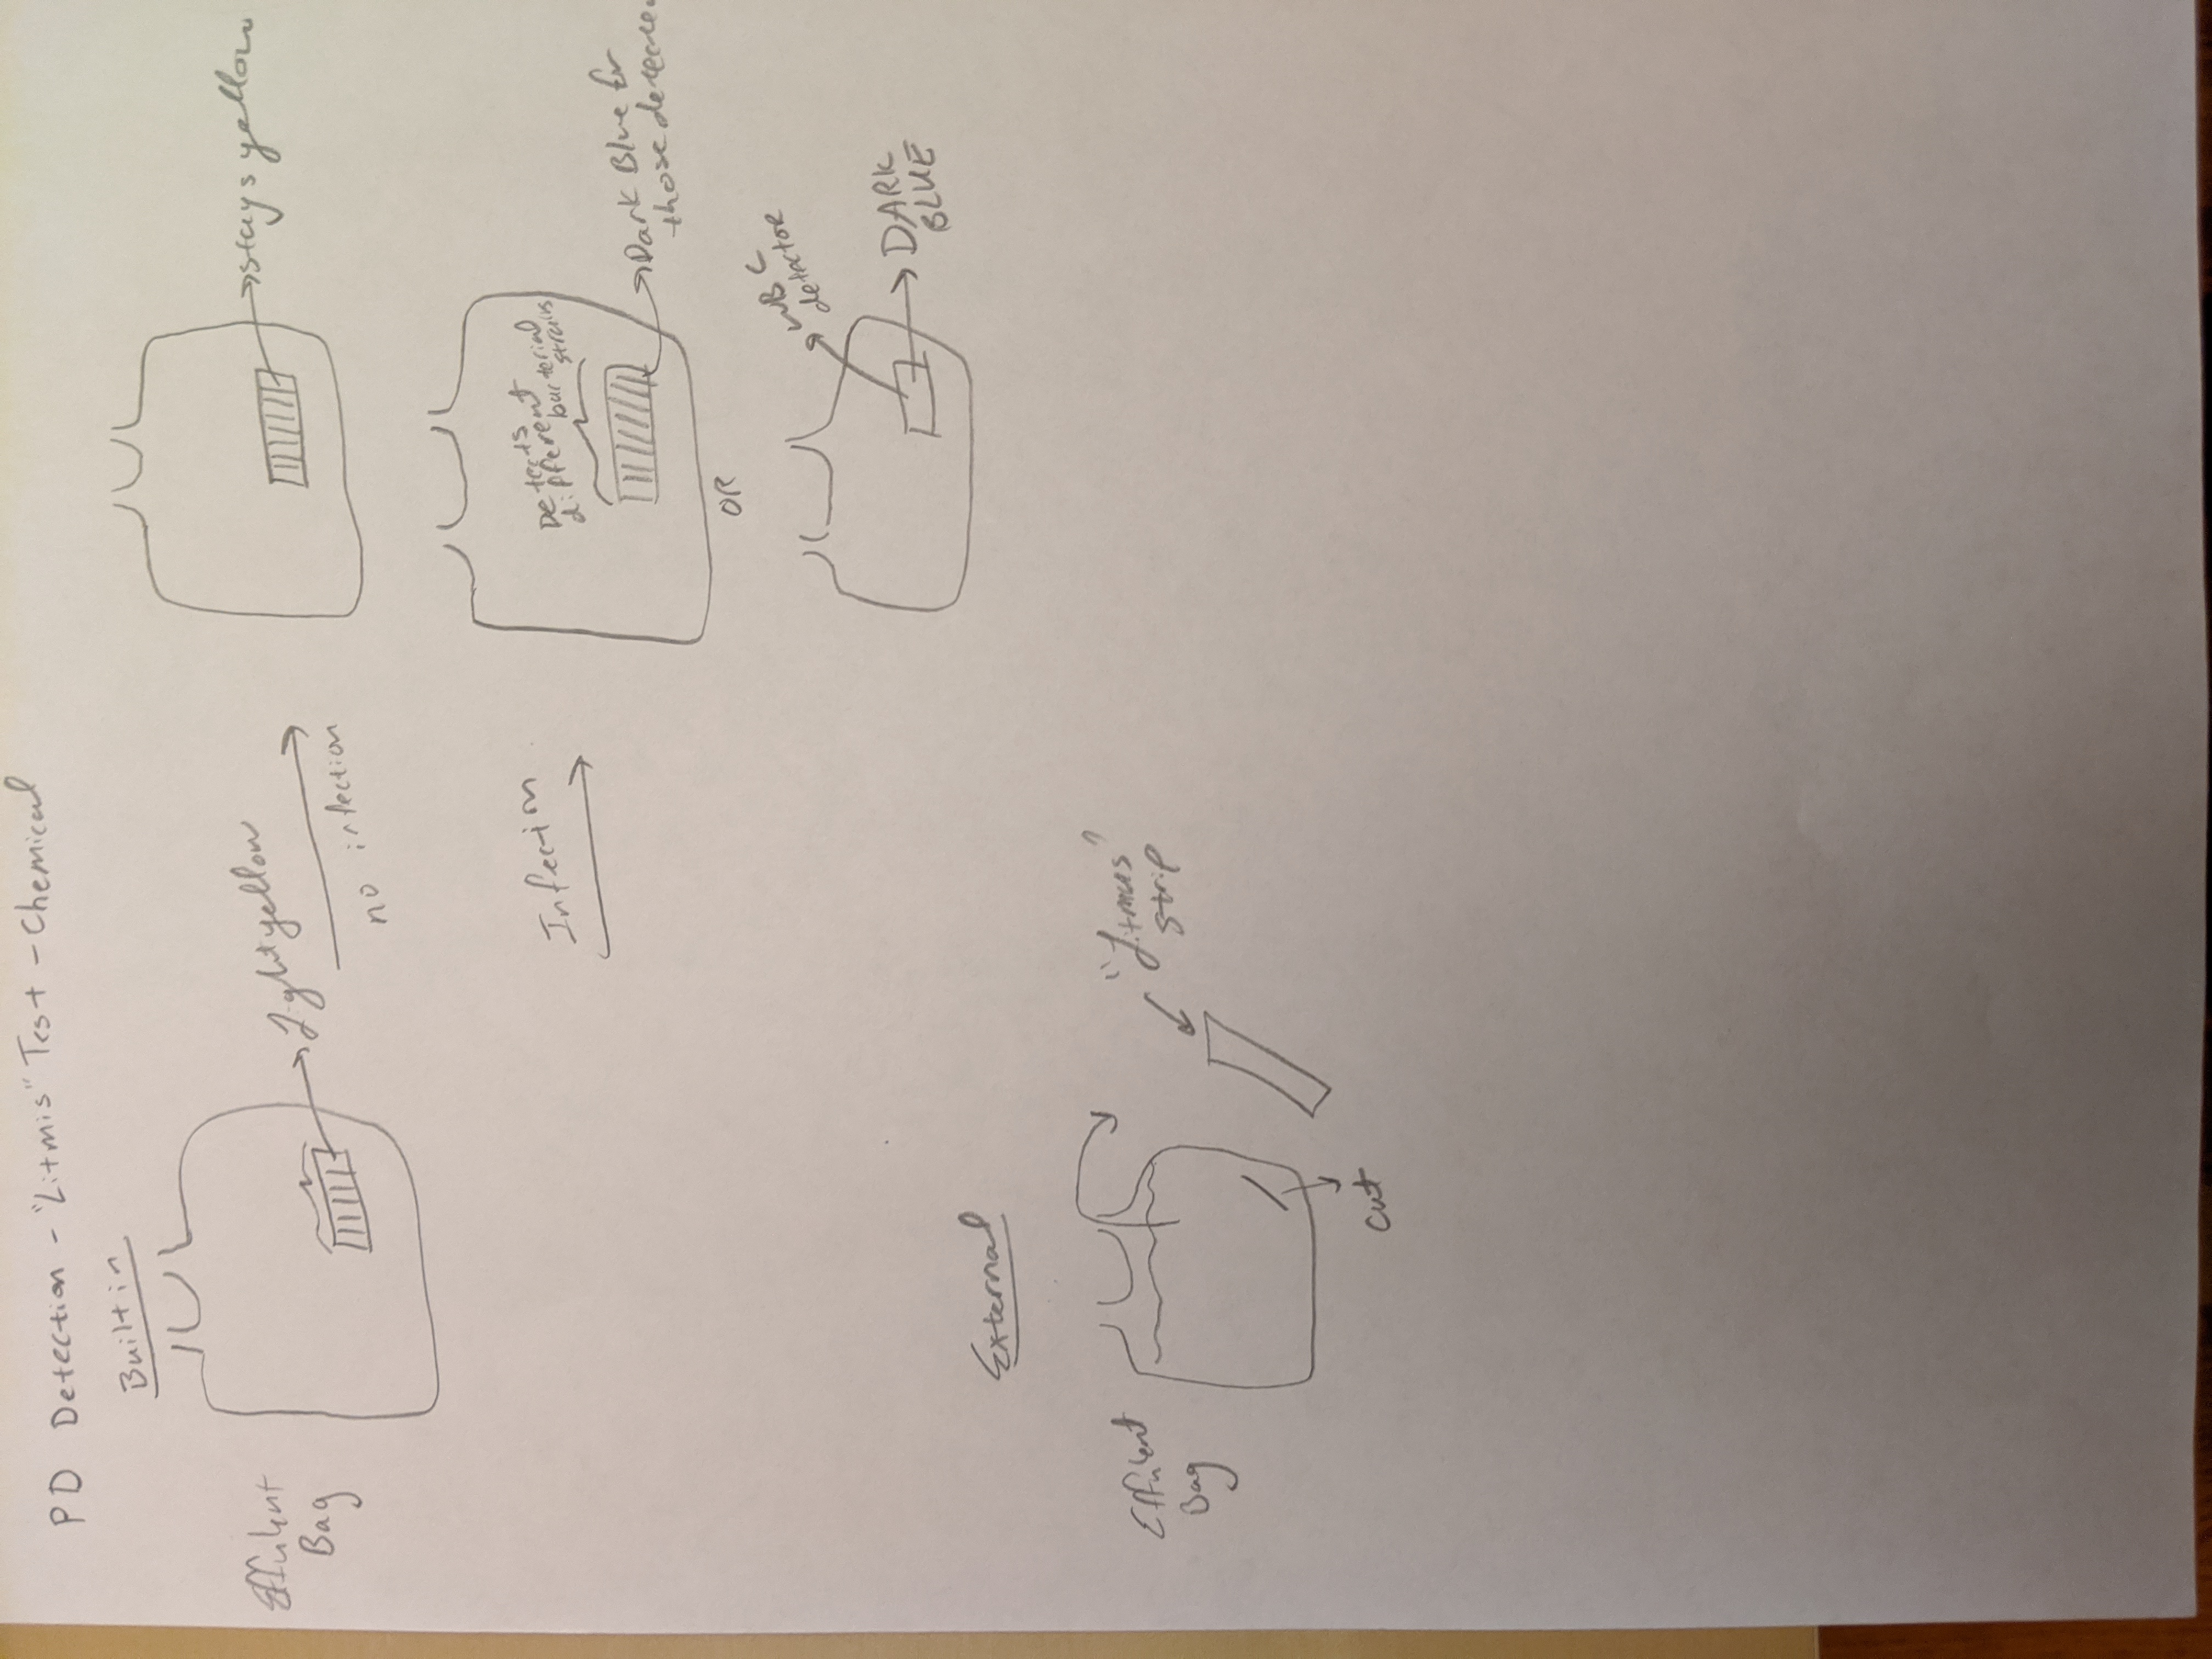 PD Detection - "Litmis" Test - Chemical
Built in
Effulent
Bag
Light yellow
no infection
stays yellow
Infection
Detects
different
bacterial
strains
Dark Blue for
those detected
OR
WBC
detector
DARK
BLUE
External
Effulent
Bag
"Litmus"
strip
cut